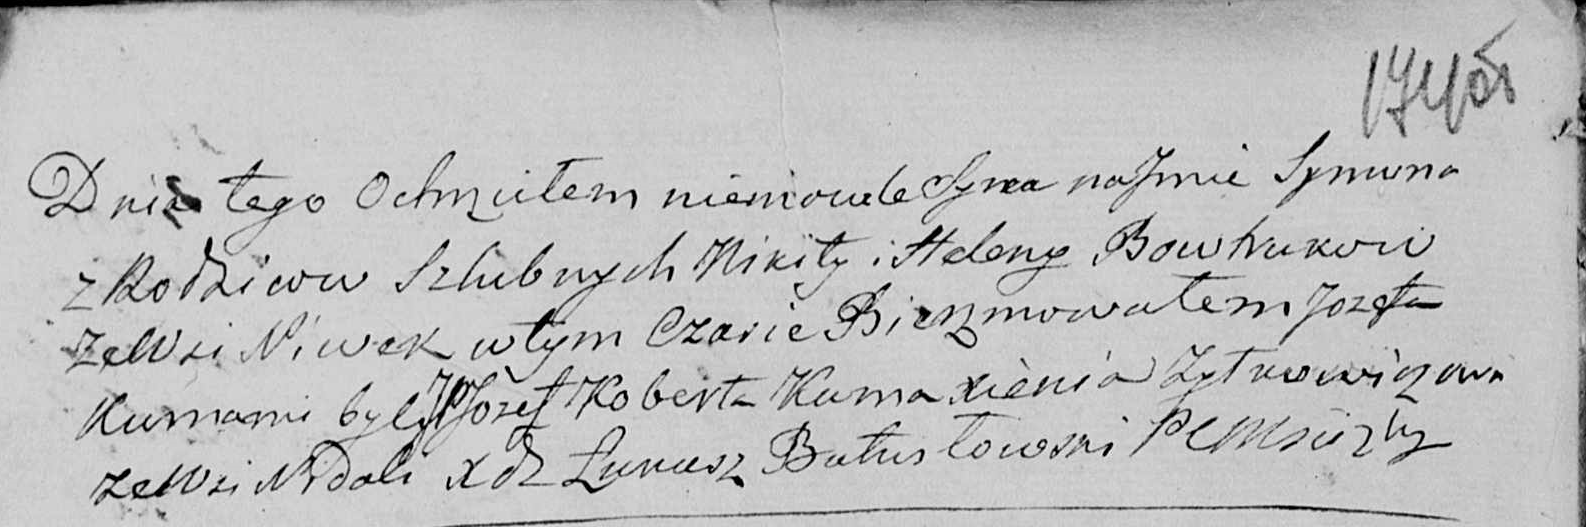 Dnia tego Ochrzciłem niemowle Syna na Jmie Symona
z Rodzicow Szlubnych Nikity i Heleny Bowtrukow
ze Wsi Niwek w tym Czasie Bierzmowałem Jozefa
Kumami byly Jozef Koberta Kuma xienia Zytkowiczowa
ze Wsi Nedali xdz Łukasz Butusłowski